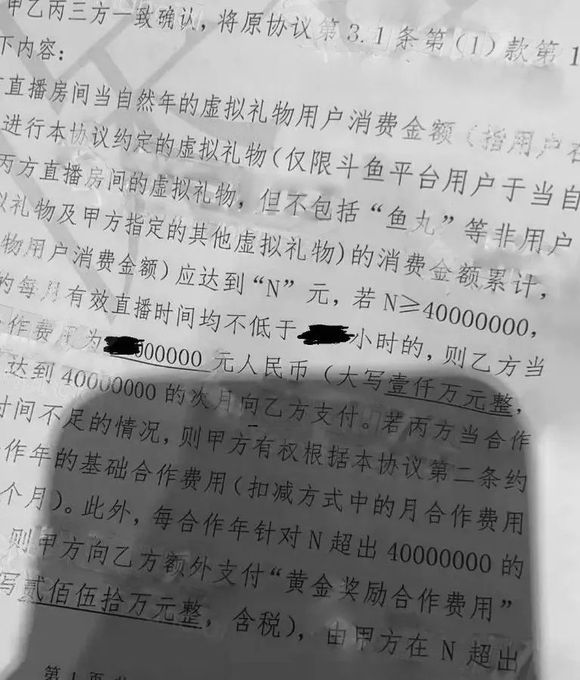 甲乙丙三方一致确认，将原协议第3.1条第(1)款第1
下内容：
直播房间当自然年的虚拟礼物用户消费金额（指用户在
进行本协议约定的虚拟礼物(仅限斗鱼平台用户于当自
丙方直播房间的虚拟礼物，但不包括“鱼丸”等非用户
礼物及甲方指定的其他虚拟礼物)的消费金额累计，
物用户消费金额）应达到“N”元，若N≥40000000，
的每月有效直播时间均不低于 小时的，则乙方当
作费用为 00000 元人民币（大写壹仟万元整，
达到40000000的次月向乙方支付。若丙方当合作
时间不足的情况，则甲方有权根据本协议第二条约
作年的基础合作费用（扣减方式中的月合作费用
个月）。此外，每合作年针对N超出40000000的
则甲方向乙方额外支付“黄金奖励合作费用”
写贰佰伍拾万元整，含税），由甲方在N超出
第1页